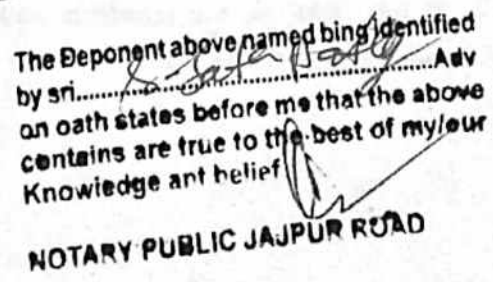 The Deponent above named bing identified
by sri..............................Adv
on oath states before me that the above
contains are true to the best of my/our
Knowledge ant belief
NOTARY PUBLIC JAJPUR ROAD